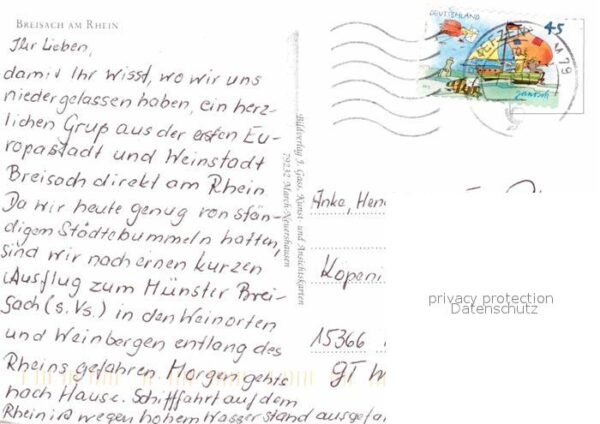 BREISACH AM RHEIN
Ihr Lieben,
damit Ihr wisst, wo wir uns
niedergelassen haben, ein herz-
lichen Gruß aus der ersten Eu-
ropastadt und Weinstadt
Breisach direkt am Rhein
Da wir heute genug von stän-
digem Städtebummeln hatten,
sind wir nach einen kurzen
Ausflug zum Münster Brei-
sach (s. Vs.) in den Weinorten
und Weinbergen entlang des
Rheins gefahren. Morgen gehts
nach Hause. Schifffahrt auf dem
Rhein ist wegen hohem Wasserstand ausgefa
Bildverlag J. Gass, Kunst- und Ansichtskarten
79232 March-Neuershausen
DEUTSCHLAND
45
Janosch
79
Anke, Hen
Köpeni
15366
GT
privacy protection
Datenschutz